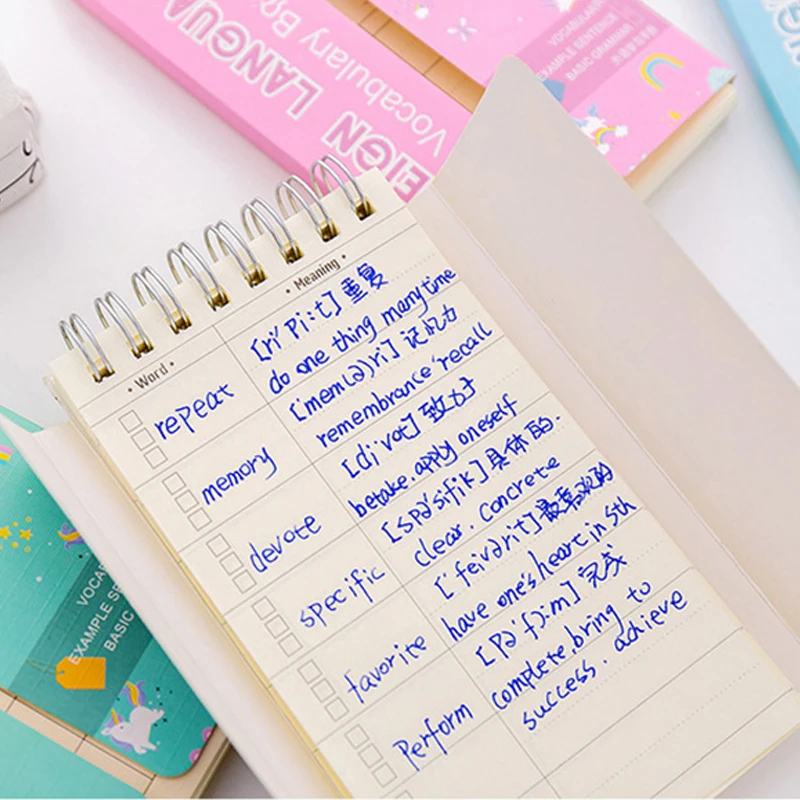 FOREIGN LANGUA
Vocabulary Bo
VOCABULARY
EXAMPLE SENTENCE
BASIC GRAMMAR
• Word •
• Meaning •
repeat
[ri'Pi:t] 重复
do one thing many time
memory
['mem(ə)ri] 记忆力
remembrance recall
devote
[di'vot] 致力于
betake. apply oneself
specific
[spə'sifik] 具体的.
clear. concrete
favorite
['feivərit] 最喜欢的
have one's heart in sth
Perform
[Pə'fɔ:m] 完成
complete. bring to
success. achieve
VOCAB
EXAMPLE SE
BASIC